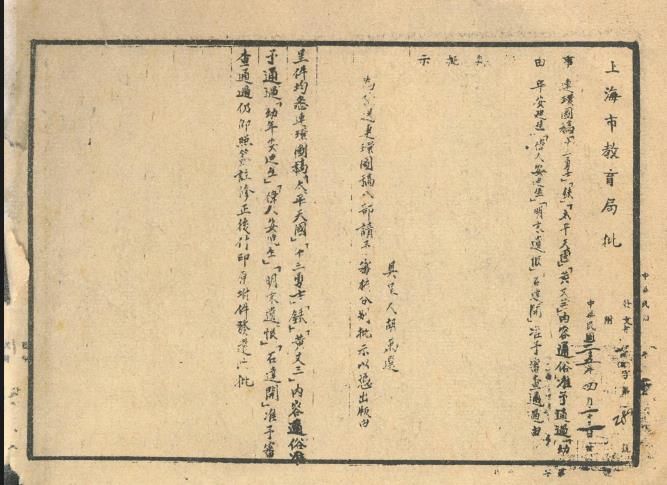 上海市教育局批
附
中華民國三十五年四月二十三日
事 連環圖稿「十二勇士」「鐵」「太平天國」「黃天三」內容通俗准予通過「幼
由 年安迪生」「偉人安迪生」「明末遺恨」「石達開」准予審查通過由
具呈人胡
為呈送連環圖稿八部請予審核分別批示以憑出版由
呈件均悉連環圖稿「太平天國」「十二勇士」「鐵」「黃天三」內容通俗准
予通過「幼年安迪生」「偉人安迪生」「明末遺恨」「石達開」准予審
查通過仍仰照簽註修正後付印原附件發還此批
擬示